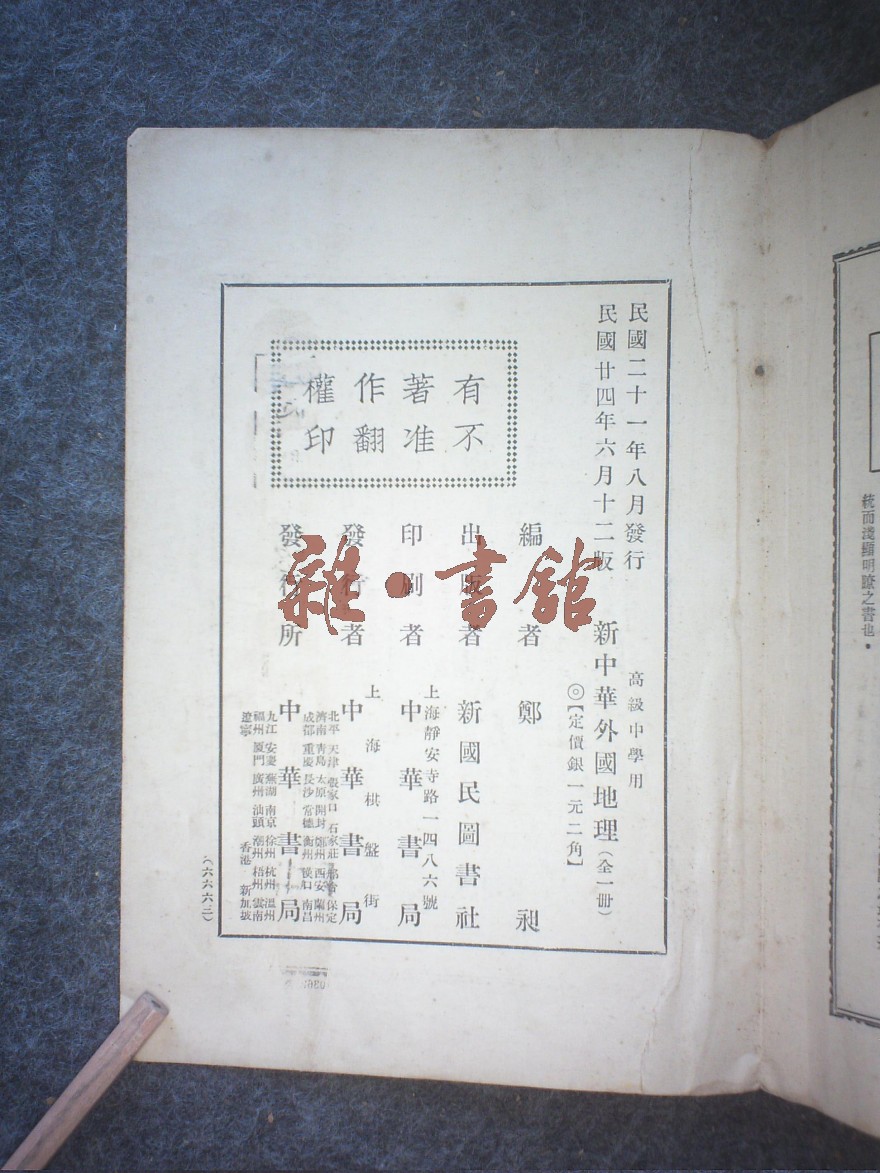 民國二十一年八月發行
民國廿四年六月十二版
高級中學用
新中華外國地理(全一册)
◎【定價銀一元二角】
有不
著准
作翻
權印
編者 鄭昶
出版者 新國民圖書社
上海靜安寺路一四八六號
印刷者 中華書局
上海棋盤街
發行者 中華書局
發行所 中華書局
北平 天津 張家口 石家莊 保定
濟南 青島 太原 開封 鄭州 西安 蘭州
成都 重慶 長沙 常德 衡州 漢口 南昌
九江 安慶 蕪湖 南京 徐州 杭州 溫州
福州 厦門 廣州 汕頭 潮州 梧州 雲南
遼寧 香港 新加坡
(六六六三)
雜·書館
統而淺顯明瞭之書也。